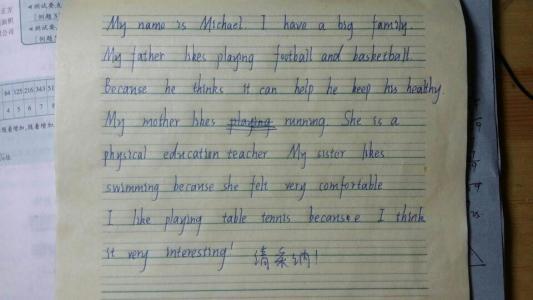 My name is Michael. I have a big family.
My father likes playing football and basketball.
Because he thinks it can help he keep his healthy.
My mother likes playing running. She is a
physical education teacher My sister likes
swimming because she felt very comfortable
I like playing table tennis because I think
it very interesting! 请采纳!
64 125 216 343 51
4 5 6 7 8